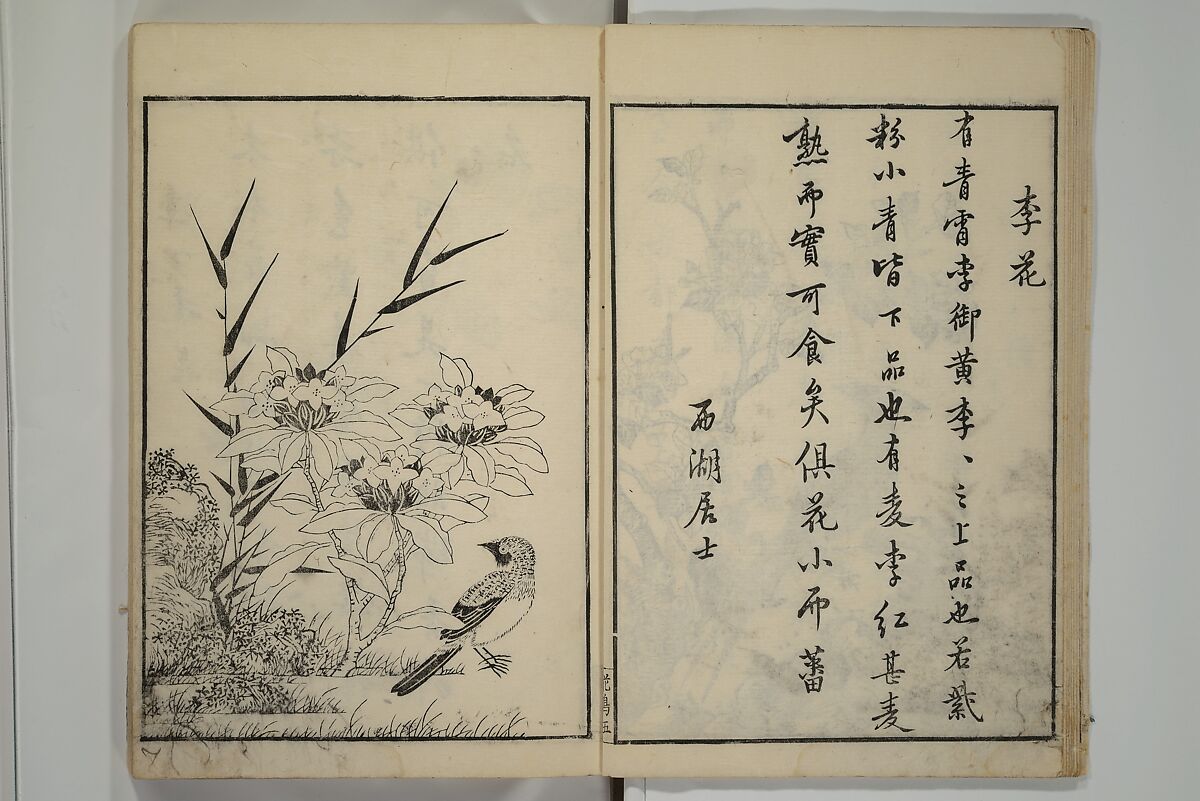 李花
有青霄李御黄李、之上品也若紫
粉小青皆下品也有麦李红甚麦
熟而實可食矣俱花小而蕃
西湖居士
花鳥五